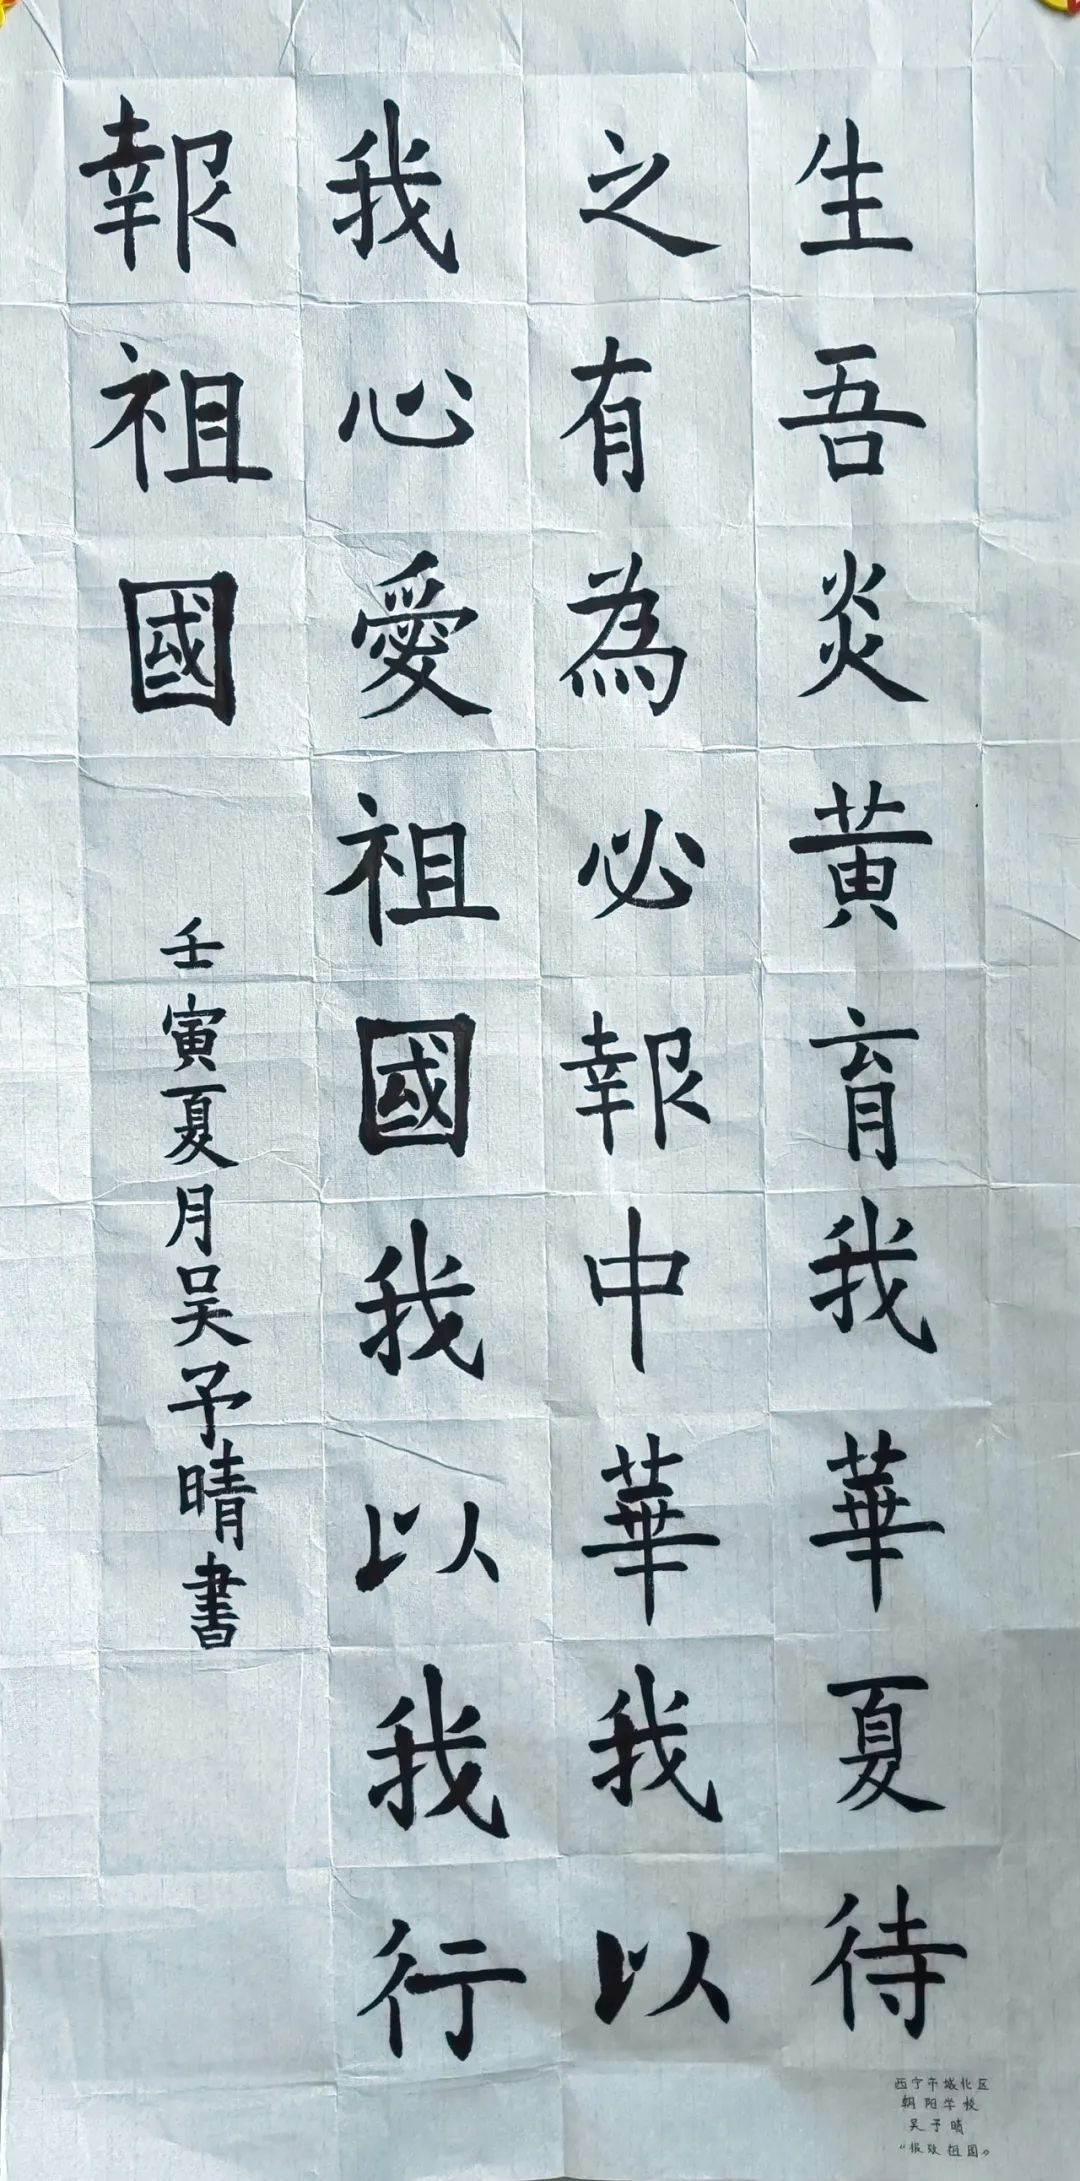 生吾炎黄育我華夏待
之有為必報中華我以
我心愛祖國我以我行
報祖國
壬寅夏月吴予晴書
西宁市城北区
朝阳学校
吴予晴
《报效祖国》